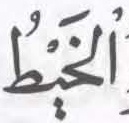 اَلْخَيْطُ